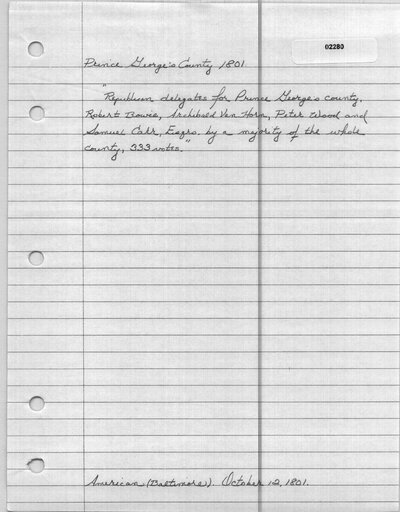 02280
Prince George's County 1801
"Republican delegates for Prince George's county,
Robert Bowie, Archibald Van Horn, Peter Wood and
Samuel Carr, Esqrs. by a majority of the whole
county, 333 votes."
American (Baltimore). October 12, 1801.